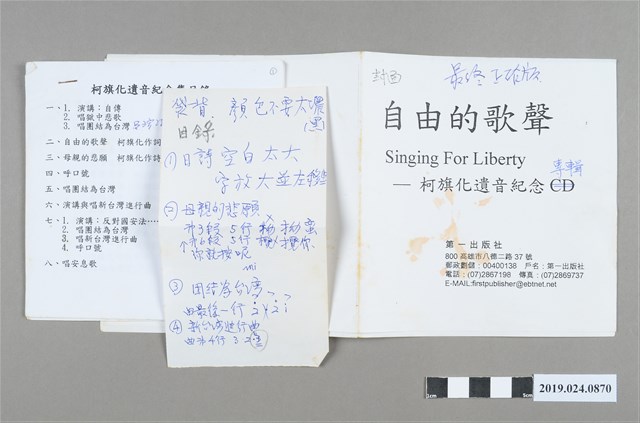 柯旗化遺音紀念集目錄
一、1. 演講：自傳
2. 唱獄中悲歌
3. 唱團結為台灣
二、自由的歌聲 柯旗化作詞
三、母親的悲願 柯旗化作詩
四、呼口號
五、唱團結為台灣
六、演講與唱新台灣進行曲
七、1. 演講：反對國安法……
2. 唱團結為台灣
3. 唱新台灣進行曲
4. 呼口號
八、唱安息歌
袋背 顏色不要太濃
(黑)
目錄
① 日詩 空白太大
字放大並左移些
② 母親的悲願
③ 團結為台灣
曲最後一行
④ 新台灣進行曲
封面 最終正確版
自由的歌聲
Singing For Liberty 專輯
— 柯旗化遺音紀念 CD
第一出版社
800 高雄市八德二路 37 號
郵政劃儲：00400138 戶名：第一出版社
電話：(07)2867198 傳真：(07)2869737
E-MAIL:firstpublisher@ebtnet.net
1cm
5cm
2019.024.0870